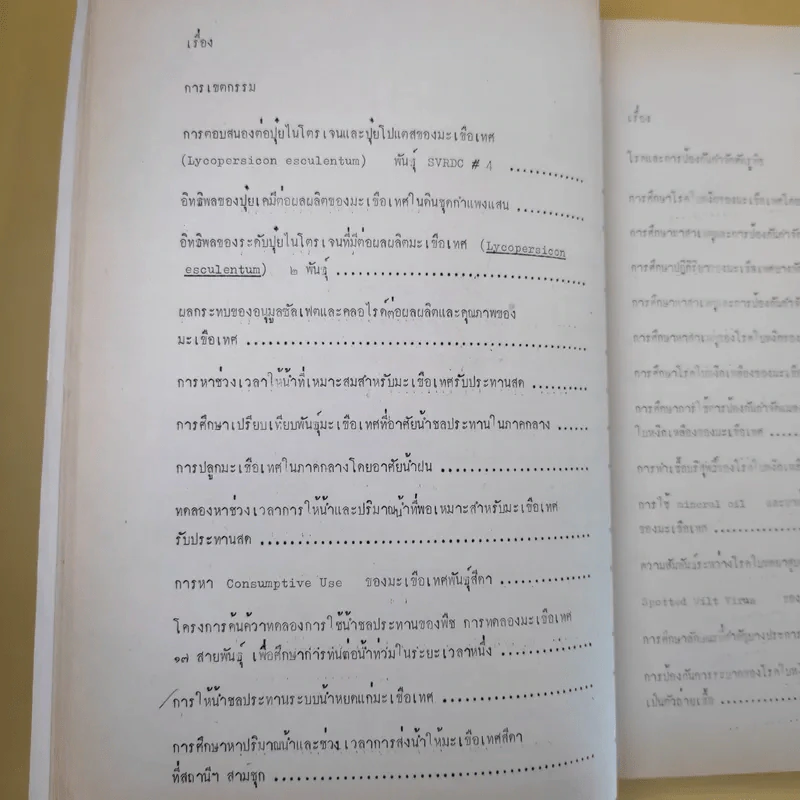 เรื่อง
การเขตกรรม
การตอบสนองต่อปุ๋ยไนโตรเจนและปุ๋ยโปแตสของมะเขือเทศ
(Lycopersicon esculentum) พันธุ์ SVRDC # 4 ............
อิทธิพลของปุ๋ยเคมีต่อผลผลิตของมะเขือเทศในดินชุดกำแพงแสน ............
อิทธิพลของระดับปุ๋ยไนโตรเจนที่มีต่อผลผลิตมะเขือเทศ (Lycopersicon
esculentum) ๒ พันธุ์ ............
ผลกระทบของอนุมูลซัลเฟตและคลอไรด์ต่อผลผลิตและคุณภาพของ
มะเขือเทศ ............
การหาช่วงเวลาให้น้ำที่เหมาะสมสำหรับมะเขือเทศรับประทานสด ............
การศึกษาเปรียบเทียบพันธุ์มะเขือเทศที่อาศัยน้ำชลประทานในภาคกลาง ......
การปลูกมะเขือเทศในภาคกลางโดยอาศัยน้ำฝน ............
ทดลองหาช่วงเวลาการให้น้ำและปริมาณน้ำที่พอเหมาะสำหรับมะเขือเทศ
รับประทานสด ............
การหา Consumptive Use ของมะเขือเทศพันธุ์สีดา ............
โครงการค้นคว้าทดลองการใช้น้ำชลประทานของพืช การทดลองมะเขือเทศ
๑๗ สายพันธุ์ เพื่อศึกษาการทนต่อน้ำท่วมในระยะเวลาหนึ่ง ............
การให้น้ำชลประทานระบบน้ำหยดแก่มะเขือเทศ ............
การศึกษาหาปริมาณน้ำและช่วงเวลาการส่งน้ำให้มะเขือเทศสีดา
ที่สถานีฯ สามชุก ............
เรื่อง
โรคและการป้องกันกำจัดศัตรูพืช
การศึกษาโรคใบหงิกของมะเขือเทศโดย
การศึกษาหาสาเหตุและการป้องกันกำจัด
การศึกษาปฏิกิริยาของมะเขือเทศบางพัน
การศึกษาหาสาเหตุและการป้องกันกำจัด
การศึกษาหาสาเหตุของโรคใบหงิกของ
การศึกษาโรคใบหงิกเหลืองของมะเขือ
การศึกษาการใช้การป้องกันกำจัดแมลง
ใบหงิกเหลืองของมะเขือเทศ ............
การทำเชื้อบริสุทธิ์ของโรคใบหงิกเหลือ
การใช้ mineral oil
ของมะเขือเทศ ............
ความสัมพันธ์ระหว่างโรคใบหดยาสูบ
Spotted Wilt Virus ของ
การศึกษาลักษณะที่สำคัญบางประการ
การป้องกันการระบาดของโรคใบหงิก
เป็นตัวถ่ายเชื้อ ............